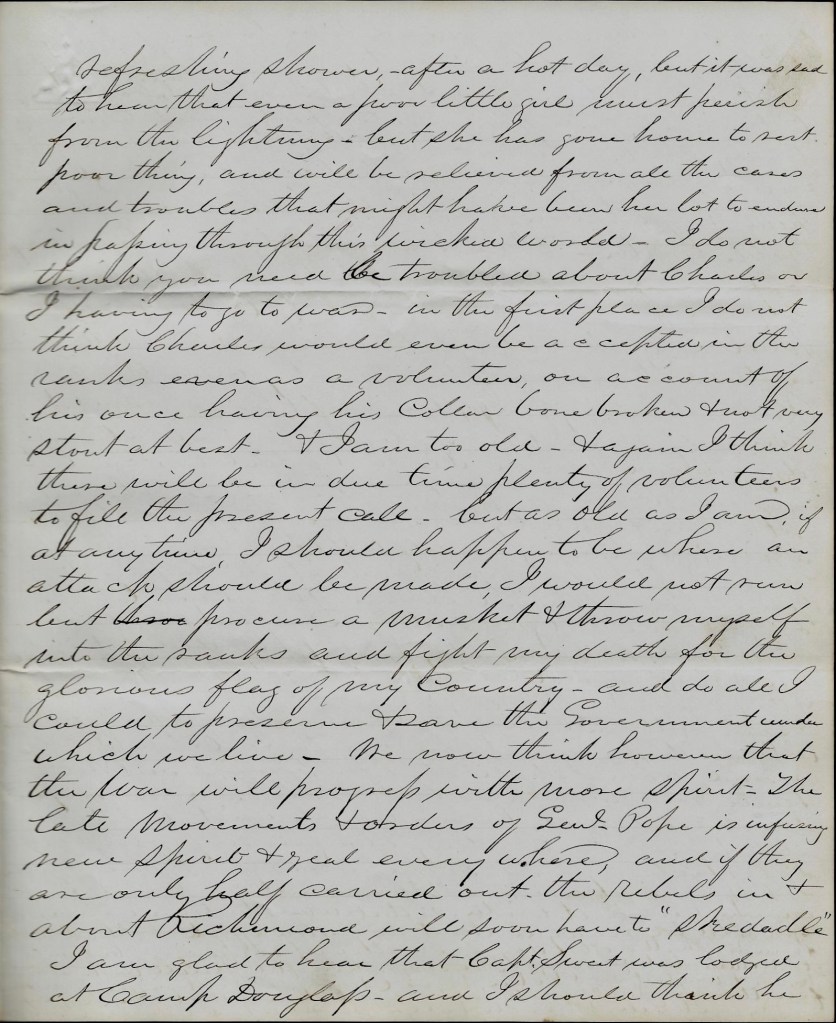 refreshing shower, - after a hot day, but it was sad
to hear that even a poor little girl must perish
from the lightning - but she has gone home to rest.
poor thing, and will be relieved from all the cares
and troubles that might have been her lot to endure
in passing through this wicked world - I do not
think you need be troubled about Charles or
I having to go to war - in the first place I do not
think Charles would even be accepted in the
ranks even as a volunteer, on account of
his once having his Collar bone broken & not very
stout at best - & I am too old - & again I think
there will be in due time plenty of volunteers
to fill the present call - but as old as I am, if
at any time, I should happen to be where an
attack should be made, I would not run
but procure a musket & throw myself
into the ranks and fight my death for the
glorious flag of my Country - and do all I
could to preserve & save the Government under
which we live - We now think however that
the War will progress with more spirit - The
late Movements & orders of Genl. Pope is infusing
new spirit & zeal every where, and if they
are only half carried out - the rebels in &
about Richmond will soon have to "skedadle"
I am glad to hear that Capt. Sweet was lodged
at Camp Douglass - and I should think he